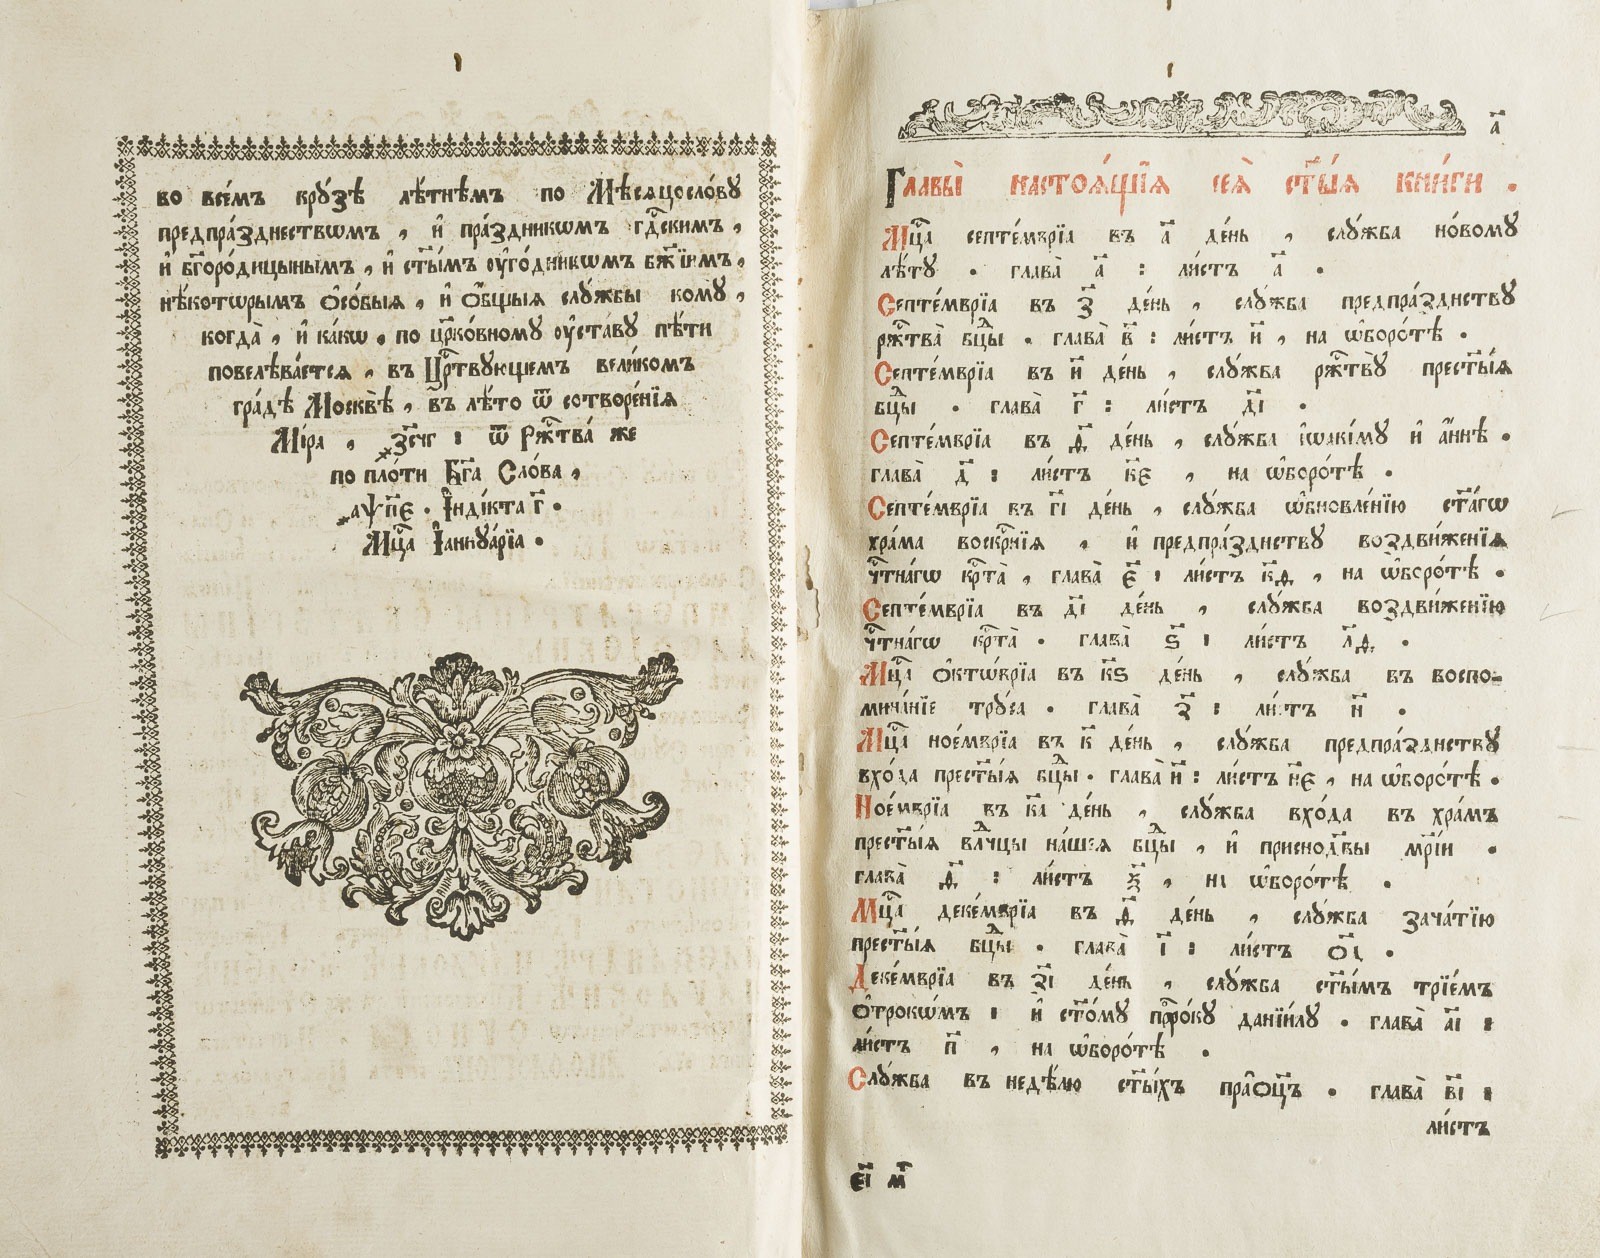 во всéмъ крýзѣ лѣ́тнѣмъ по Мѣсяцослóвꙋ
предпрáзднествѡмъ , и҆ прáздникѡмъ гдⷭ҇кимъ ,
и҆ бг҃орóдицынымъ , и҆ ст҃ы́мъ ᲂу҆гóдникѡмъ бж҃їимъ ,
нѣ́котѡрымъ ѻ҆сóбыя , и҆ ѻ҆́бщыя слꙋ́жбы комꙋ̀ ,
когдà , и҆ кáкѡ , по цр҃кóвномꙋ ᲂу҆стáвꙋ пѣ́ти
повелѣвáется , въ Црⷭ҇твꙋющемъ вели́комъ
грáдѣ Москвѣ̀ , въ лѣ́то ѿ сотворéнїя
Мíра , ҂зс҃чг : ѿ Ржⷭ҇твá же
по плóти Бг҃а Слóва ,
҂аѱ҃пє . І҆ндíкта г҃ .
Мцⷭ҇а І҆аннꙋáрїа .
а҃
Главы̀ настоя́щїѧ сея̀ ст҃ы́я кни́ги .
Мцⷭ҇а септéмврїа въ а҃ дéнь , слꙋ́жба нóвомꙋ
лѣ́тꙋ . главà а҃ : ли́стъ а҃ .
Септéмврїа въ з҃ дéнь , слꙋ́жба предпрáзднствꙋ
ржⷭ҇твà бцⷣы . главà в҃ : ли́стъ и҃ , на ѡ҆борóтѣ .
Септéмврїа въ и҃ дéнь , слꙋ́жба ржⷭ҇твꙋ̀ прест҃ы́я
бцⷣы . главà г҃ : ли́стъ д҃і .
Септéмврїа въ ѳ҃ дéнь , слꙋ́жба і҆ѡакíмꙋ и҆ а҆́ннѣ .
главà д҃ : ли́стъ к҃є , на ѡ҆борóтѣ .
Септéмврїа въ г҃і дéнь , слꙋ́жба ѡ҆бновлéнїю ст҃áгѡ
хрáма воскрⷭ҇нїя , и҆ предпрáзднствꙋ воздви́женїя
чⷭ҇тнáгѡ крⷭ҇тà , главà є҃ : ли́стъ к҃ѳ , на ѡ҆борóтѣ .
Септéмврїа въ д҃і дéнь , слꙋ́жба воздви́женїю
чⷭ҇тнáгѡ крⷭ҇тà . главà ѕ҃ : ли́стъ л҃ѳ .
Мцⷭ҇а ѻ҆ктѡ́врїа въ к҃ѕ дéнь , слꙋ́жба въ воспо-
минáнїе трꙋ́са . главà з҃ : ли́стъ н҃ .
Мцⷭ҇а ноéмврїа въ к҃ дéнь , слꙋ́жба предпрáзднствꙋ
вхóда прест҃ы́я бцⷣы . главà и҃ : ли́стъ н҃є , на ѡ҆борóтѣ .
Ноéмврїа въ к҃а дéнь , слꙋ́жба вхóда въ хрáмъ
прест҃ы́я влⷣчцы нáшея бцⷣы , и҆ приснодв҃ы мр҃íи .
главà ѳ҃ : ли́стъ ѯ҃ , на ѡ҆борóтѣ .
Мцⷭ҇а декéмврїа въ ѳ҃ дéнь , слꙋ́жба зачáтїю
прест҃ы́я бцⷣы . главà і҃ : ли́стъ ѻ҃і .
Декéмврїа въ з҃і дéнь , слꙋ́жба ст҃ы́мъ трїéмъ
ѻ҆трокѡ́мъ : и҆ ст҃óмꙋ прⷪ҇рóкꙋ данїи́лꙋ . главà а҃і :
ли́стъ п҃ , на ѡ҆борóтѣ .
Слꙋ́жба въ недѣ́лю ст҃ы́хъ прáѻц҃ъ . главà в҃і :
ли́стъ
є҃і м҃т